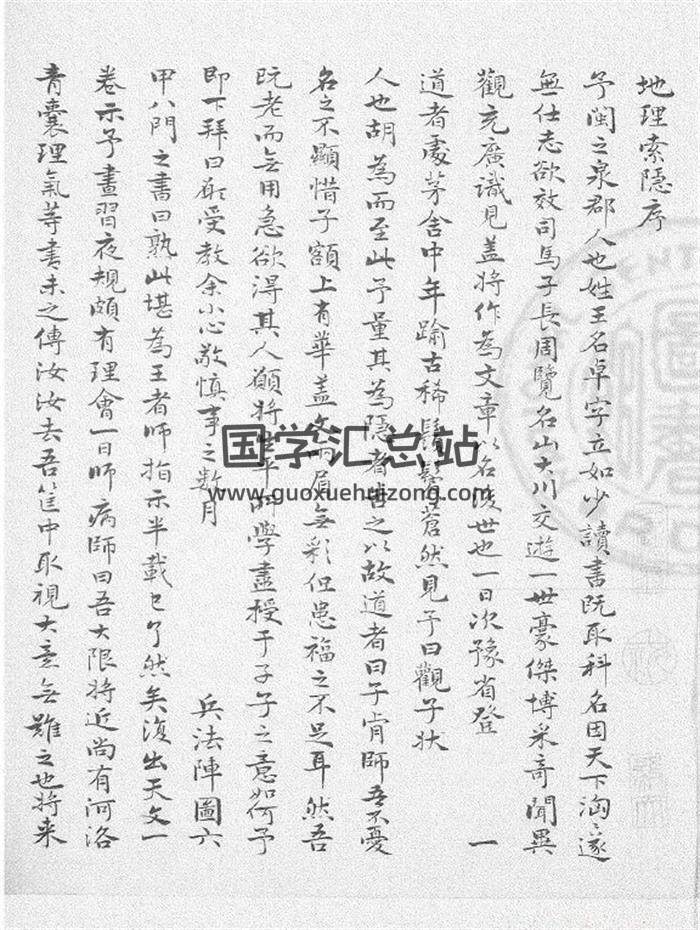 地理索隱序
予閩之泉郡人也姓王名卓字立如少讀書既取科名因天下洶遂
無仕志欲效司馬子長周覽名山大川交遊一世豪傑博采奇聞異
觀充廣識見蓋將作為文章以名後世也一日次豫省登 一
道者處茅舍中年踰古稀鬚鬢蒼然見予曰觀子狀
人也胡為而至此予量其為隱者 之以故道者曰子肯師吾不憂
名之不顯惜子額上有華蓋文 眉無彩但患福之不足耳然吾
既老而無用急欲得其人願將生平所學盡授于子子之意如何予
即下拜曰願受教余小心敬慎事之數月 兵法陣圖六
甲八門之書曰熟此堪為王者師指示半載已了然矣復出天文一
卷示予晝習夜規頗有理會一日師病師曰吾大限將近尚有河洛
青囊理氣等書未之傳汝汝去吾筐中取視大意無難之也將來
国学汇总站
www.guoxuehuizong.com